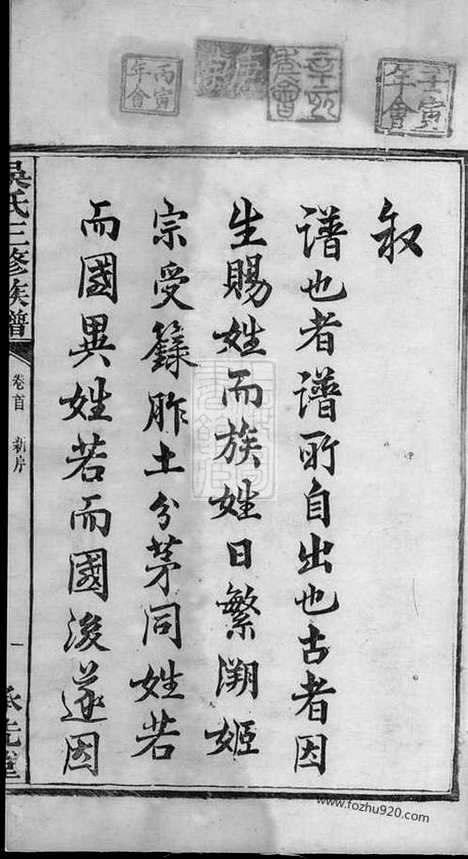 叙
譜也者譜所自出也古者因
生賜姓而族姓日繁溯姬
宗受籙胙土分茅同姓若
而國異姓若而國後遂因
吳氏三修族譜
卷首 新序
一
承先堂
壬寅年會
辛亥
丙寅年會
www.fozhu920.com